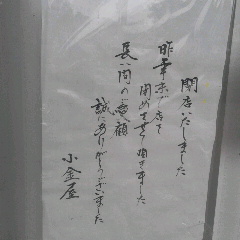 閉店いたしました
昨年末で店を
閉めさせて頂きました
長い間の愛顧
誠にありがとうございました
小金屋